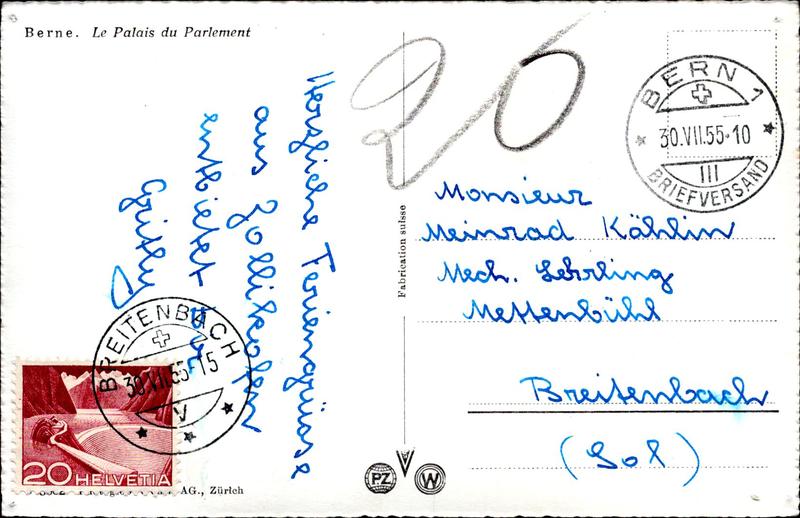 Berne. Le Palais du Parlement
Herzliche Feriengrüsse
aus Zollikofen
entbietet Dir
20
BERN 1
30.VII.55-10
III
BRIEFVERSAND
Monsieur
Meinrad Kählin
Mech. Lehrling
Mettenbühl
Breitenbach
(Sol)
Fabrication suisse
BREITENBACH
30.VII.55-15
V
20 HELVETIA
AG., Zürich
PZ
W